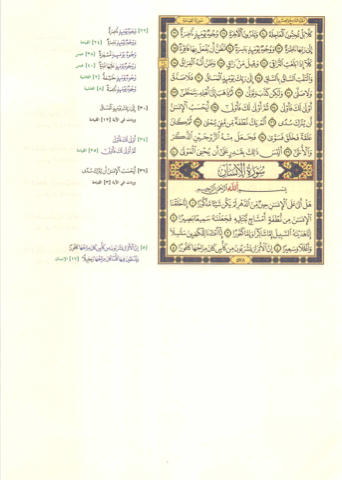 كَلَّا بَلْ تُحِبُّونَ ٱلْعَاجِلَةَ ٢٠ وَتَذَرُونَ ٱلْءَاخِرَةَ ٢١ وُجُوهٌ يَوْمَئِذٍ نَّاضِرَةٌ ٢٢
إِلَىٰ رَبِّهَا نَاظِرَةٌ ٢٣ وَوُجُوهٌ يَوْمَئِذٍۭ بَاسِرَةٌ ٢٤ تَظُنُّ أَن يُفْعَلَ بِهَا فَاقِرَةٌ ٢٥
كَلَّآ إِذَا بَلَغَتِ ٱلتَّرَاقِىَ ٢٦ وَقِيلَ مَنْ ۜ رَاقٍ ٢٧ وَظَنَّ أَنَّهُ ٱلْفِرَاقُ ٢٨
وَٱلْتَفَّتِ ٱلسَّاقُ بِٱلسَّاقِ ٢٩ إِلَىٰ رَبِّكَ يَوْمَئِذٍ ٱلْمَسَاقُ ٣٠ فَلَا صَدَّقَ
وَلَا صَلَّىٰ ٣١ وَلَٰكِن كَذَّبَ وَتَوَلَّىٰ ٣٢ ثُمَّ ذَهَبَ إِلَىٰٓ أَهْلِهِۦ يَتَمَطَّىٰٓ ٣٣
أَوْلَىٰ لَكَ فَأَوْلَىٰ ٣٤ ثُمَّ أَوْلَىٰ لَكَ فَأَوْلَىٰٓ ٣٥ أَيَحْسَبُ ٱلْإِنسَٰنُ
أَن يُتْرَكَ سُدًى ٣٦ أَلَمْ يَكُ نُطْفَةً مِّن مَّنِىٍّ يُمْنَىٰ ٣٧ ثُمَّ كَانَ
عَلَقَةً فَخَلَقَ فَسَوَّىٰ ٣٨ فَجَعَلَ مِنْهُ ٱلزَّوْجَيْنِ ٱلذَّكَرَ
وَٱلْأُنثَىٰٓ ٣٩ أَلَيْسَ ذَٰلِكَ بِقَٰدِرٍ عَلَىٰٓ أَن يُحْۦِىَ ٱلْمَوْتَىٰ ٤٠
سُورَةُ الإِنسَانِ
بِسْمِ ٱللَّهِ ٱلرَّحْمَٰنِ ٱلرَّحِيمِ
هَلْ أَتَىٰ عَلَى ٱلْإِنسَٰنِ حِينٌ مِّنَ ٱلدَّهْرِ لَمْ يَكُن شَيْـًٔا مَّذْكُورًا ١ إِنَّا خَلَقْنَا
ٱلْإِنسَٰنَ مِن نُّطْفَةٍ أَمْشَاجٍ نَّبْتَلِيهِ فَجَعَلْنَٰهُ سَمِيعًۢا بَصِيرًا ٢
إِنَّا هَدَيْنَٰهُ ٱلسَّبِيلَ إِمَّا شَاكِرًا وَإِمَّا كَفُورًا ٣ إِنَّآ أَعْتَدْنَا لِلْكَٰفِرِينَ سَلَٰسِلَا۟
وَأَغْلَٰلًا وَسَعِيرًا ٤ إِنَّ ٱلْأَبْرَارَ يَشْرَبُونَ مِن كَأْسٍ كَانَ مِزَاجُهَا كَافُورًا ٥
٥٧٨
[٢٢] وُجُوهٌ يَوْمَئِذٍ نَّاضِرَةٌ
وَوُجُوهٌ يَوْمَئِذٍۭ بَاسِرَةٌ [٢٤] القيامة
وُجُوهٌ يَوْمَئِذٍ مُّسْفِرَةٌ [٣٨] عبس
وَوُجُوهٌ يَوْمَئِذٍ عَلَيْهَا غَبَرَةٌ [٤٠] عبس
وُجُوهٌ يَوْمَئِذٍ خَٰشِعَةٌ [٢] الغاشية
وُجُوهٌ يَوْمَئِذٍ نَّاعِمَةٌ [٨] الغاشية
[٣٠] إِلَىٰ رَبِّكَ يَوْمَئِذٍ ٱلْمَسَاقُ
وردت في الآية [١٢] القيامة
[٣٤] أَوْلَىٰ لَكَ فَأَوْلَىٰ
ثُمَّ أَوْلَىٰ لَكَ فَأَوْلَىٰٓ [٣٥] القيامة
[٣٦] أَيَحْسَبُ ٱلْإِنسَٰنُ أَن يُتْرَكَ سُدًى
وردت في الآية [٣] القيامة
[٥] إِنَّ ٱلْأَبْرَارَ يَشْرَبُونَ مِن كَأْسٍ كَانَ مِزَاجُهَا كَافُورًا
وَيُسْقَوْنَ فِيهَا كَأْسًا كَانَ مِزَاجُهَا زَنجَبِيلًا [١٧] الإنسان